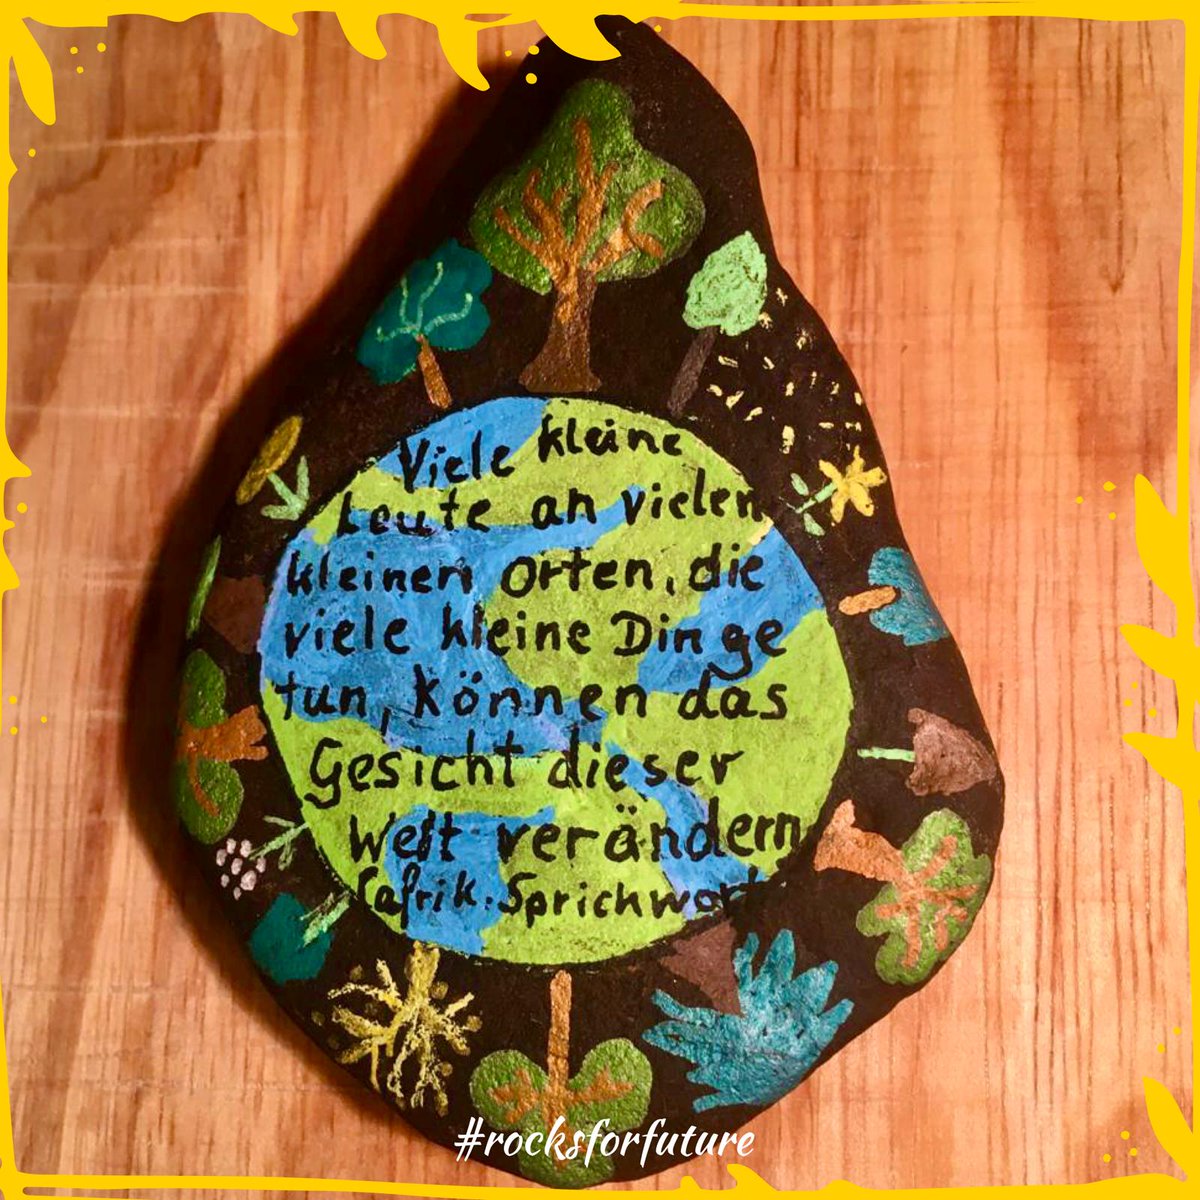 Viele kleine
Leute an vielen
kleinen Orten, die
viele kleine Dinge
tun, können das
Gesicht dieser
Welt verändern
(afrik. Sprichwort
#rocksforfuture